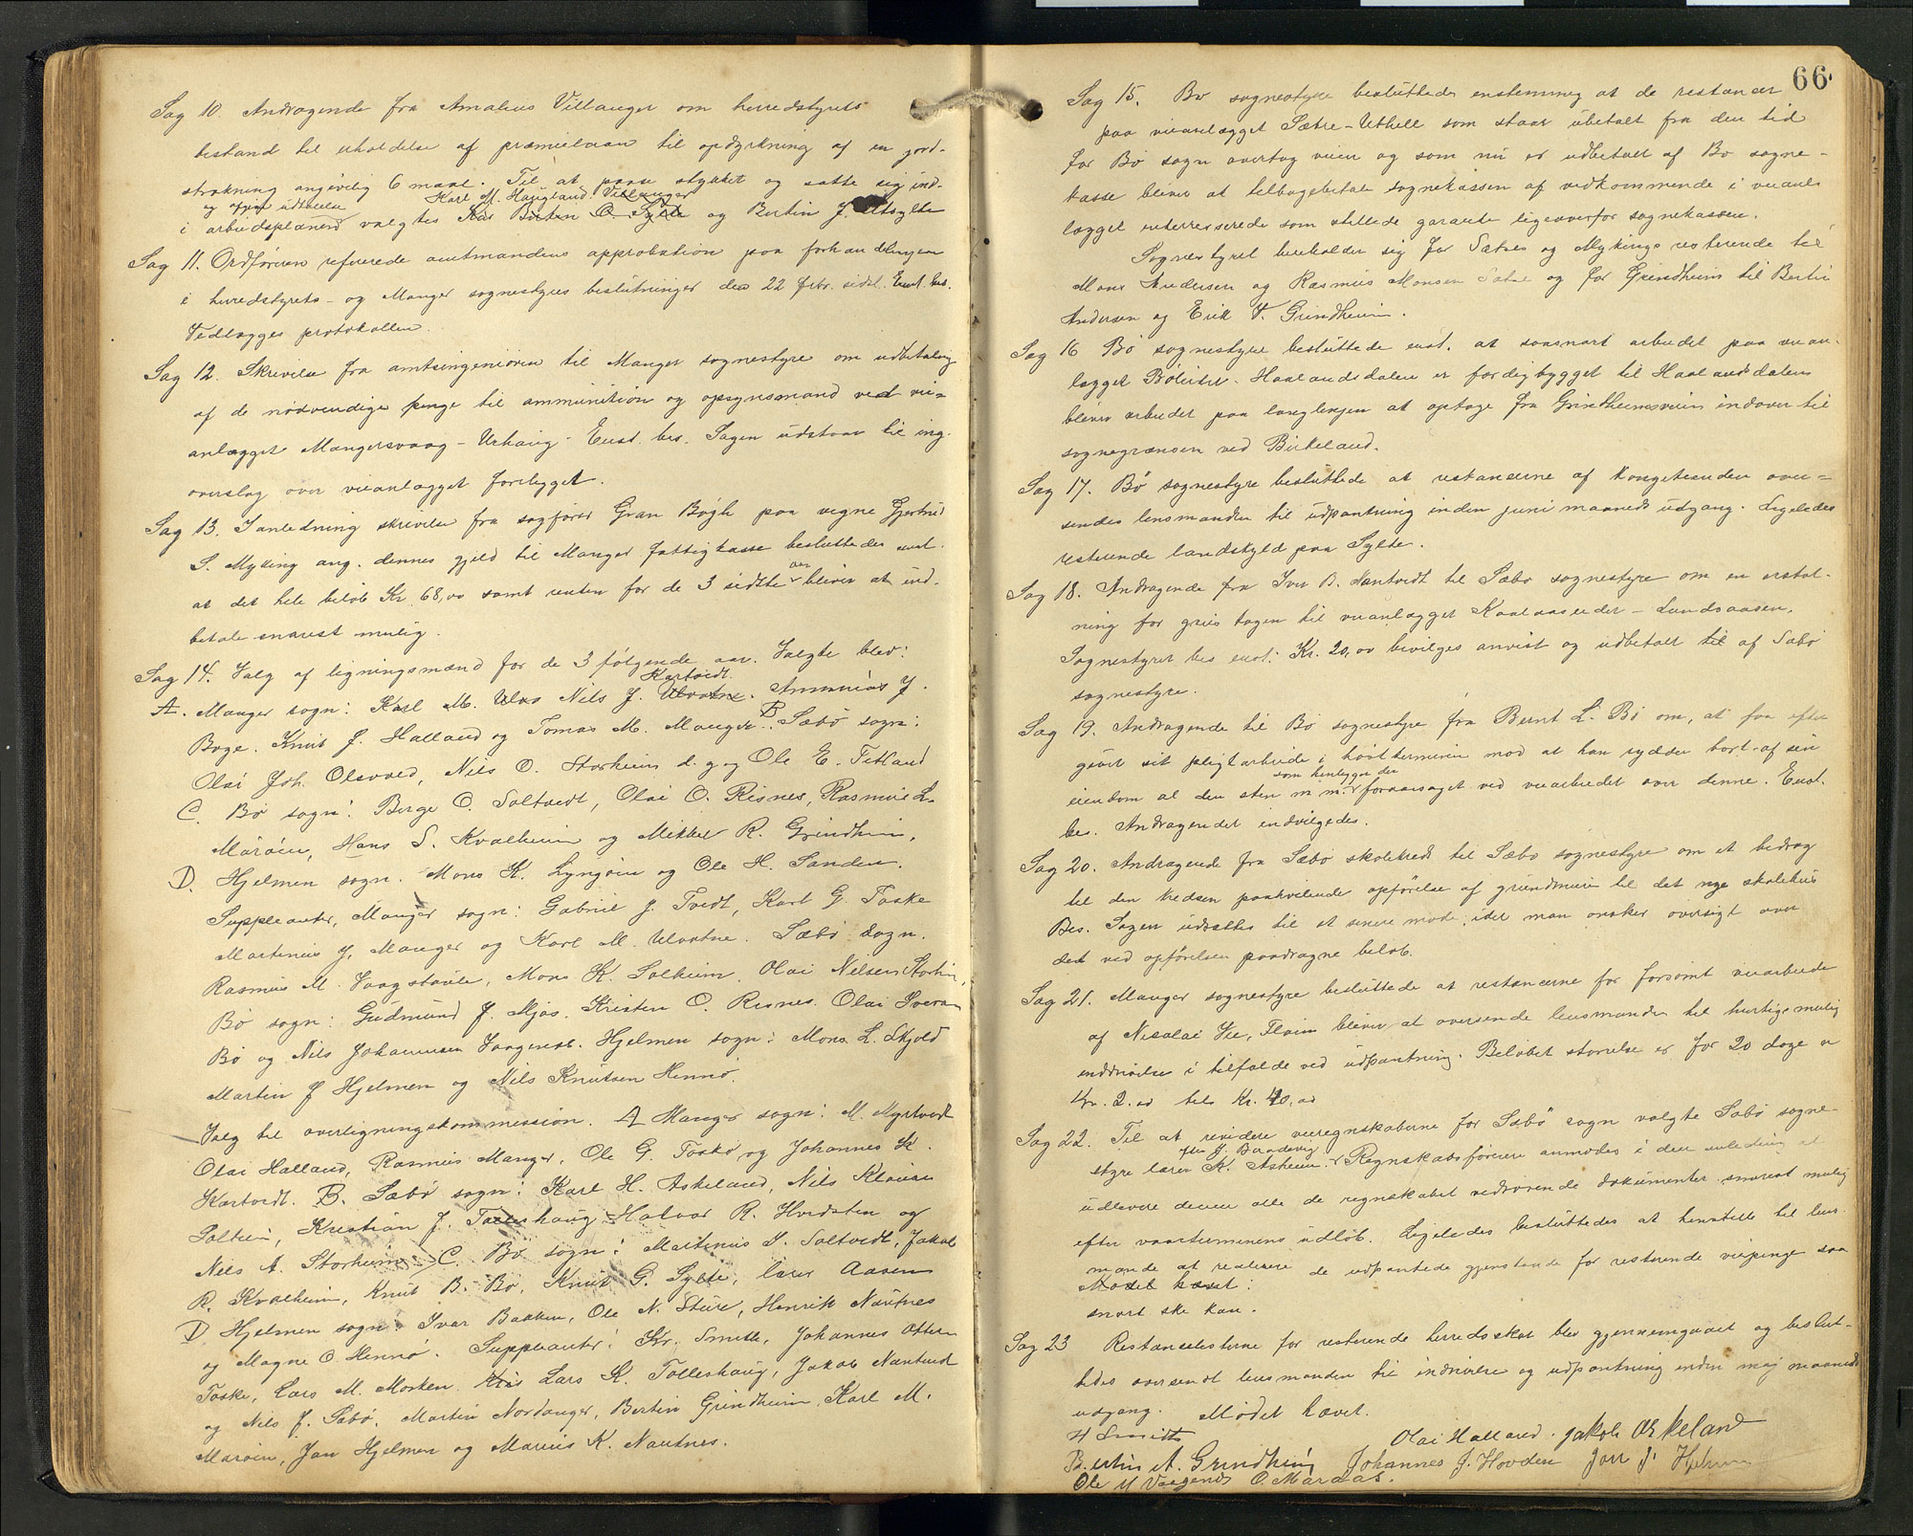 Sag 10. Andragende fra Amalius Villanger om herredstyrets
bistand til erholdelse af præmielaan til opdyrkning af en jord-
strækning angivelig 6 maal. Til at paase stykket og sætte sig ind-
og afgive udtalelse Karl M. Haugland Villanger
i arbeidsplanen valgtes Berten O. Sylte og Bertin J. Utsylte
Sag 11. Ordføreren refererede amtmandens approbation paa forhandlingerne
i herredstyrets- og Manger sognestyres beslutninger den 22 febr. sidst. Enst. bes.
Vedlægges protokollen.
Sag 12. Skrivelse fra amtsingeniøren til Manger sognestyre om udbetaling
af de nødvendige penge til ammunition og opsynsmand ved vei-
anlægget Mangersvaag - Urhaug. Enst. bes. Sagen udstaar til ing.
overslag over veianlægget foreligget.
Sag 13. I anledning skrivelse fra sagfører Gran Bøgh paa vegne Gjertrud
S. Myking ang. dennes gjeld til Manger fattigkasse besluttedes enst.
at det hele beløb Kr. 68,00 samt renter for de 3 sidste aar bliver at ind-
betale snarest mulig.
Sag 14. Valg af ligningsmænd for de 3 følgende aar. Valgte blev:
Kartveit.
A. Manger sogn: Karl M. Nils J. Ulvatne. Ammnias J.
Boge. Knut J. Halland og Tomas M. Manger. B Sæbø sogn:
Olai Joh. Olsvold, Nils O. Storheim d. y. og Ole E. Titland
C. Bø sogn: Børge O. Soltvedt, Olai O. Risnes, Rasmus L.
Marøen, Hans S. Kvalheim og Mikkel R. Grindheim,
D. Hjelmen sogn. Mons K. Lyngøen og Ole H. Sanden.
Suppleanter, Manger sogn: Gabriel J. Tvedt, Karl G. Toske
Martinus J. Manger og Karl M. Ulvatne. Sæbø sogn.
Rasmus M. Vaagstøule, Mons K. Solheim, Olai Nelsen Storheim,
Bø sogn: Gudmund J. Mjøs. Kristen O. Risnes. Olai Iversen
Bø og Nils Johannesen Vaagenes. Hjelmen sogn: Mons L. Skjold
Martin J Hjelmen og Nils Knutsen Hennø.
Valg til overligningskommission. A Manger sogn: M. Myrtvedt
Olai Halland, Rasmus Manger, Ole G. Toske og Johannes K.
Kartveit. B. Sæbø sogn: Karl H. Askeland, Nils Klausen
Soltun, Kristian J. Tolleshaug Halvor R. Hvidsten og
Nils A. Storheim. C. Bø sogn: Martinus I. Soltvedt, Jakob
R. Kvalheim, Knut B. Bø, Knut G. Sylte, lærer Aasen
D Hjelmen sogn: Ivar Bakken, Ole N. Sture, Henrik Nautnes
og Magne O. Hennø. Suppleanter: Kr. Smith, Johannes Ottersen
Toske, Lars M. Morken. Lars K. Tolleshaug, Jakob Nautvedt
og Nils J. Sæbø. Martin Nordanger, Bertin Grindheim, Karl M.
Marøen, Jan Hjelmen og Marius K. Nautnes.
66.
Sag 15. Bø sognestyre besluttedes enstemmig at de restancer
paa veianlægget Sætre-Uthelle som staar ubetalt fra den tid
før Bø sogn overtog veien og som nu er udbetalt af Bø sogne-
kasse bliver at tilbagebetale sognekassen af vedkommende i veian-
lægget interresserede som stillede garanti ligeoverfor sognekassen.
Sognestyret henholder sig for Sætres og Mykings resterende til
Mons Andersen og Rasmus Monsen Sætre og for Grindheim til Bertin
Andersen og Erik T. Grindheim.
Sag 16 Bø sognestyre besluttede enst. at saasnart arbeidet paa veian-
lægget Bøleitet-Haalandsdalen er færdigbygget til Haalandsdalen
bliver arbeidet paa langlinjen at optage fra Grindheimsveien indover til
sognegrænsen ved Birkeland.
Sag 17. Bø sognestyre besluttede at restancerne af kongetienden over-
sendes lensmanden til udpantning inden juni maaneds udgang. Ligeledes
resterende landskyld paa Sylte.
Sag 18. Andragende fra Iver B. Nautvedt til Sæbø sognestyre om en erstat-
ning for grus tagen til veianlægget Kaalaasleitet - Lundsaasen.
Sognestyret bes enst: Kr. 20,00 bevilges anvist og udbetalt til af Sæbø
sognestyre.
Sag 19. Andragende til Bø sognestyre fra Bernt L. Bø om, at faa efter
givet sit pligtarbeide i høsttermin mod at han rydder bort af sin
som henligger der
eiendom al den sten m m foraarsaget ved veiarbeidet over denne. Enst.
bes. Andragendet indvilgedes.
Sag 20. Andragende fra Sæbø skolekreds til Sæbø sognestyre om et bidrag
til den kredsen paahvilende opførelse af grundmuren til det nye skolehus
Bes. Sagen udsættes til et senere møde, idet man ønsker oversigt over
det ved opførelsen paadragne beløb.
Sag 21. Manger sognestyre besluttede at restancerne for forsømt veiarbeide
af Nicolai Vee, Floien bliver at oversende lensmanden til hurtigs mulig
inddrivelse i tilfælde ved udpantning. Beløbet størrelse er for 20 dage a
Kr. 2.00 tils Kr. 40,00
Sag 22. Til at revidere veiregnskaberne for Sæbø sogn valgte Sæbø sogne-
styre lærer K. Askeim. Regnskabsføreren anmodes i den anledning at
udlevere denne alle de regnskabet vedrørende dokumenter snarest mulig
efter vaarterminens udløb. Ligeledes besluttedes at henstille til lens-
mande at realisere de udpantede gjenstande for resterende veipenge saa
Mødet hævet:
snart ske kan.
Sag 23 Restancelisterne for resterende herredsskat blev gjennemgaaet og beslut-
tedes oversendt lensmanden til inddrivelse og udpantning inden maj maaneds
udgang. Mødet hævet.
H Smith Olai Halland. Jakob Askeland
Bertin A. Grindheim Johannes J. Hovden Jon J. Hjelmen
Ole M Vaagenes O. Maraas.